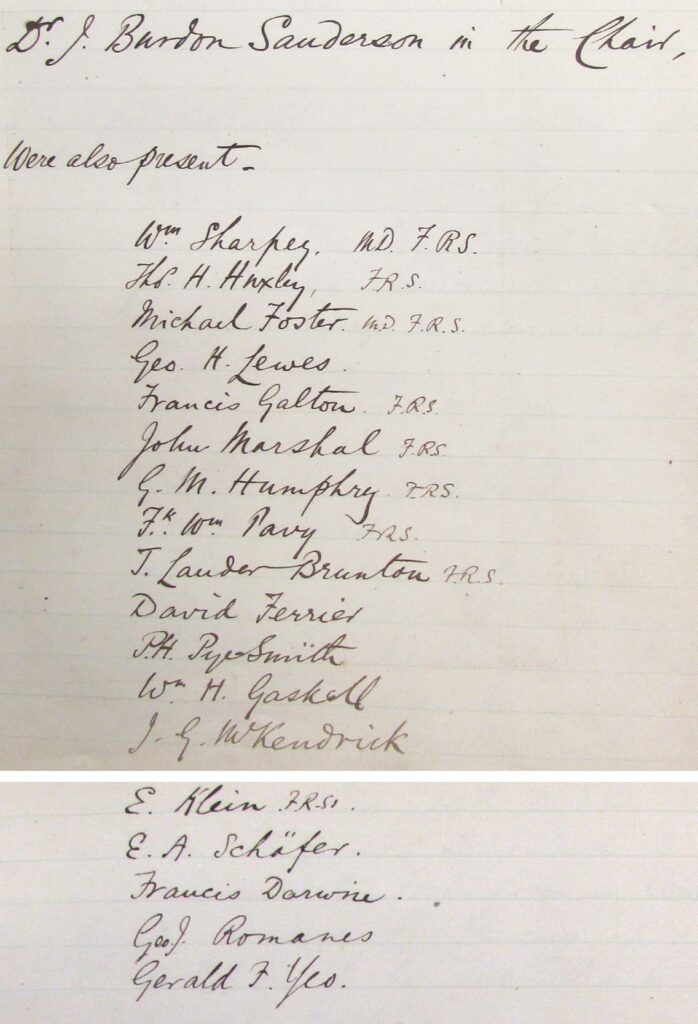 Dr. J. Burdon Sanderson in the Chair,
Were also present -
Wm Sharpey. M.D. F.R.S.
Tho. H. Huxley, F.R.S.
Michael Foster. M.D. F.R.S.
Geo. H. Lewes.
Francis Galton. F.R.S.
John Marshal F.R.S.
G. M. Humphry. F.R.S.
Fk. Wm Pavy F.R.S.
T. Lauder Brunton F.R.S.
David Ferrier
P.H. Pye-Smith
Wm H. Gaskell
J. G. McKendrick
E. Klein F.R.S.
E. A. Schäfer.
Francis Darwin.
Geo J. Romanes
Gerald F. Yeo.